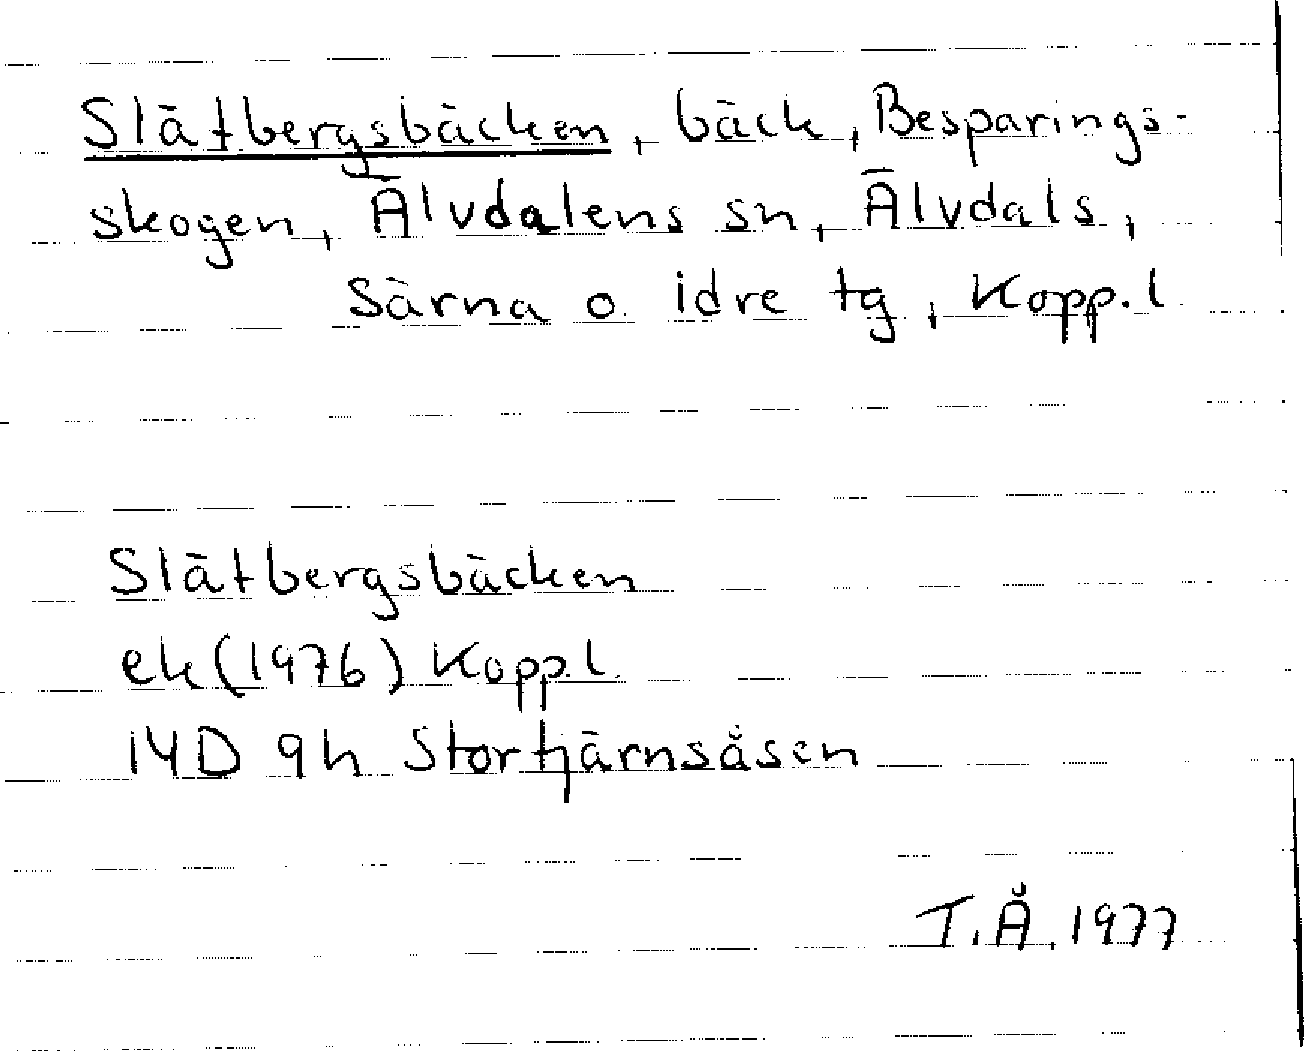 Slätbergsbäcken, bäck, Besparings-
skogen, Älvdalens sn, Älvdals,
Särna o. Idre tg, Kopp. l
Slätbergsbäcken
ek (1976) Kopp. l.
14D 9h Stortjärnsåsen
T.Å. 1977